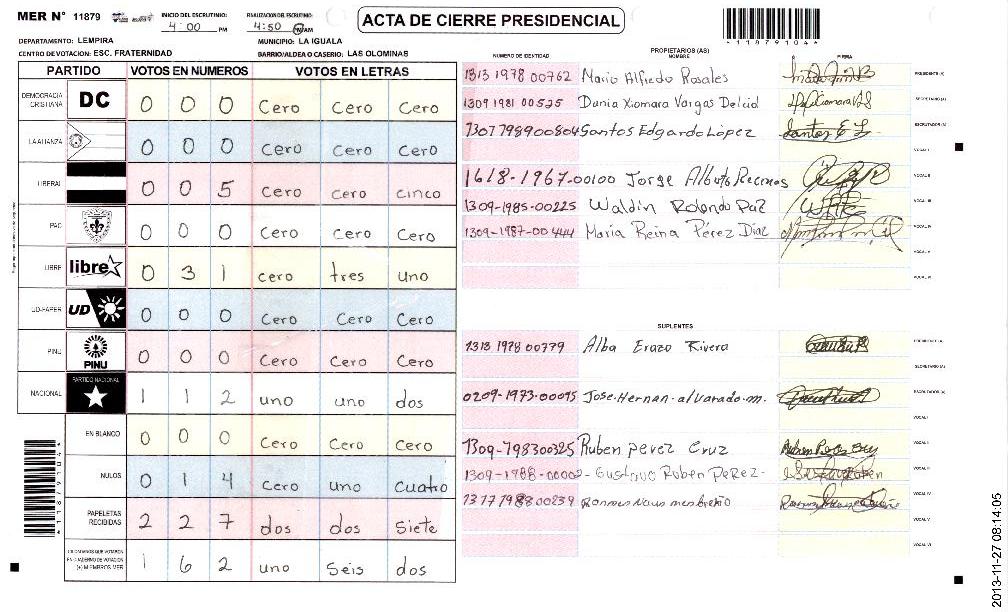 MER N° 11879
INICIO DEL ESCRUTINIO:
4:00 PM
FINALIZACION DEL ESCRUTINIO:
4:50 PM
ACTA DE CIERRE PRESIDENCIAL
*11879104*
DEPARTAMENTO: LEMPIRA
MUNICIPIO: LA IGUALA
CENTRO DE VOTACION: ESC. FRATERNIDAD
BARRIO/ALDEA O CASERIO: LAS OLOMINAS
PARTIDO VOTOS EN NUMEROS VOTOS EN LETRAS
DEMOCRACIA CRISTIANA DC 0 0 0 Cero Cero Cero
LA ALIANZA 0 0 0 cero cero cero
LIBERAL 0 0 5 cero cero cinco
PAC 0 0 0 Cero Cero Cero
LIBRE libre 0 3 1 cero tres uno
UD-FAPER UD 0 0 0 Cero Cero Cero
PINU PINU 0 0 0 Cero Cero Cero
NACIONAL PARTIDO NACIONAL 1 1 2 uno uno dos
EN BLANCO 0 0 0 Cero Cero Cero
NULOS 0 1 4 Cero uno cuatro
PAPELETAS RECIBIDAS 2 2 7 dos dos siete
CIUDADANOS QUE VOTARON EN CUADERNO DE VOTACION (+) MIEMBROS MER 1 6 2 uno seis dos
*11879104*
PROPIETARIOS (AS)
NUMERO DE IDENTIDAD NOMBRE FIRMA
1313 1978 00762 Mario Alfredo Rosales PRESIDENTE (A)
1309 1981 00525 Dunia Xiomara Vargas Delcid SECRETARIO (A)
1307798900804 Santos Edgardo López Santos E L ESCRUTADOR (A)
VOCAL I
1618-1967-00100 Jorge Alberto Recinos VOCAL II
1309-1985-00225 Waldin Rolando Paz VOCAL III
1309-1987-00444 Maria Reina Pérez Diaz VOCAL IV
VOCAL V
VOCAL VI
SUPLENTES
1313 1978 00779 Alba Erazo Rivera PRESIDENTE (A)
SECRETARIO (A)
0209-1973-00095 Jose-Hernan-alvarado-m. ESCRUTADOR (A)
VOCAL I
1309-798300325 Ruben perez Cruz VOCAL II
1309-1988-00002- Gustavo Ruben PeRez- VOCAL III
1377198800239 VOCAL IV
VOCAL V
VOCAL VI
2013-11-27 08:14:05